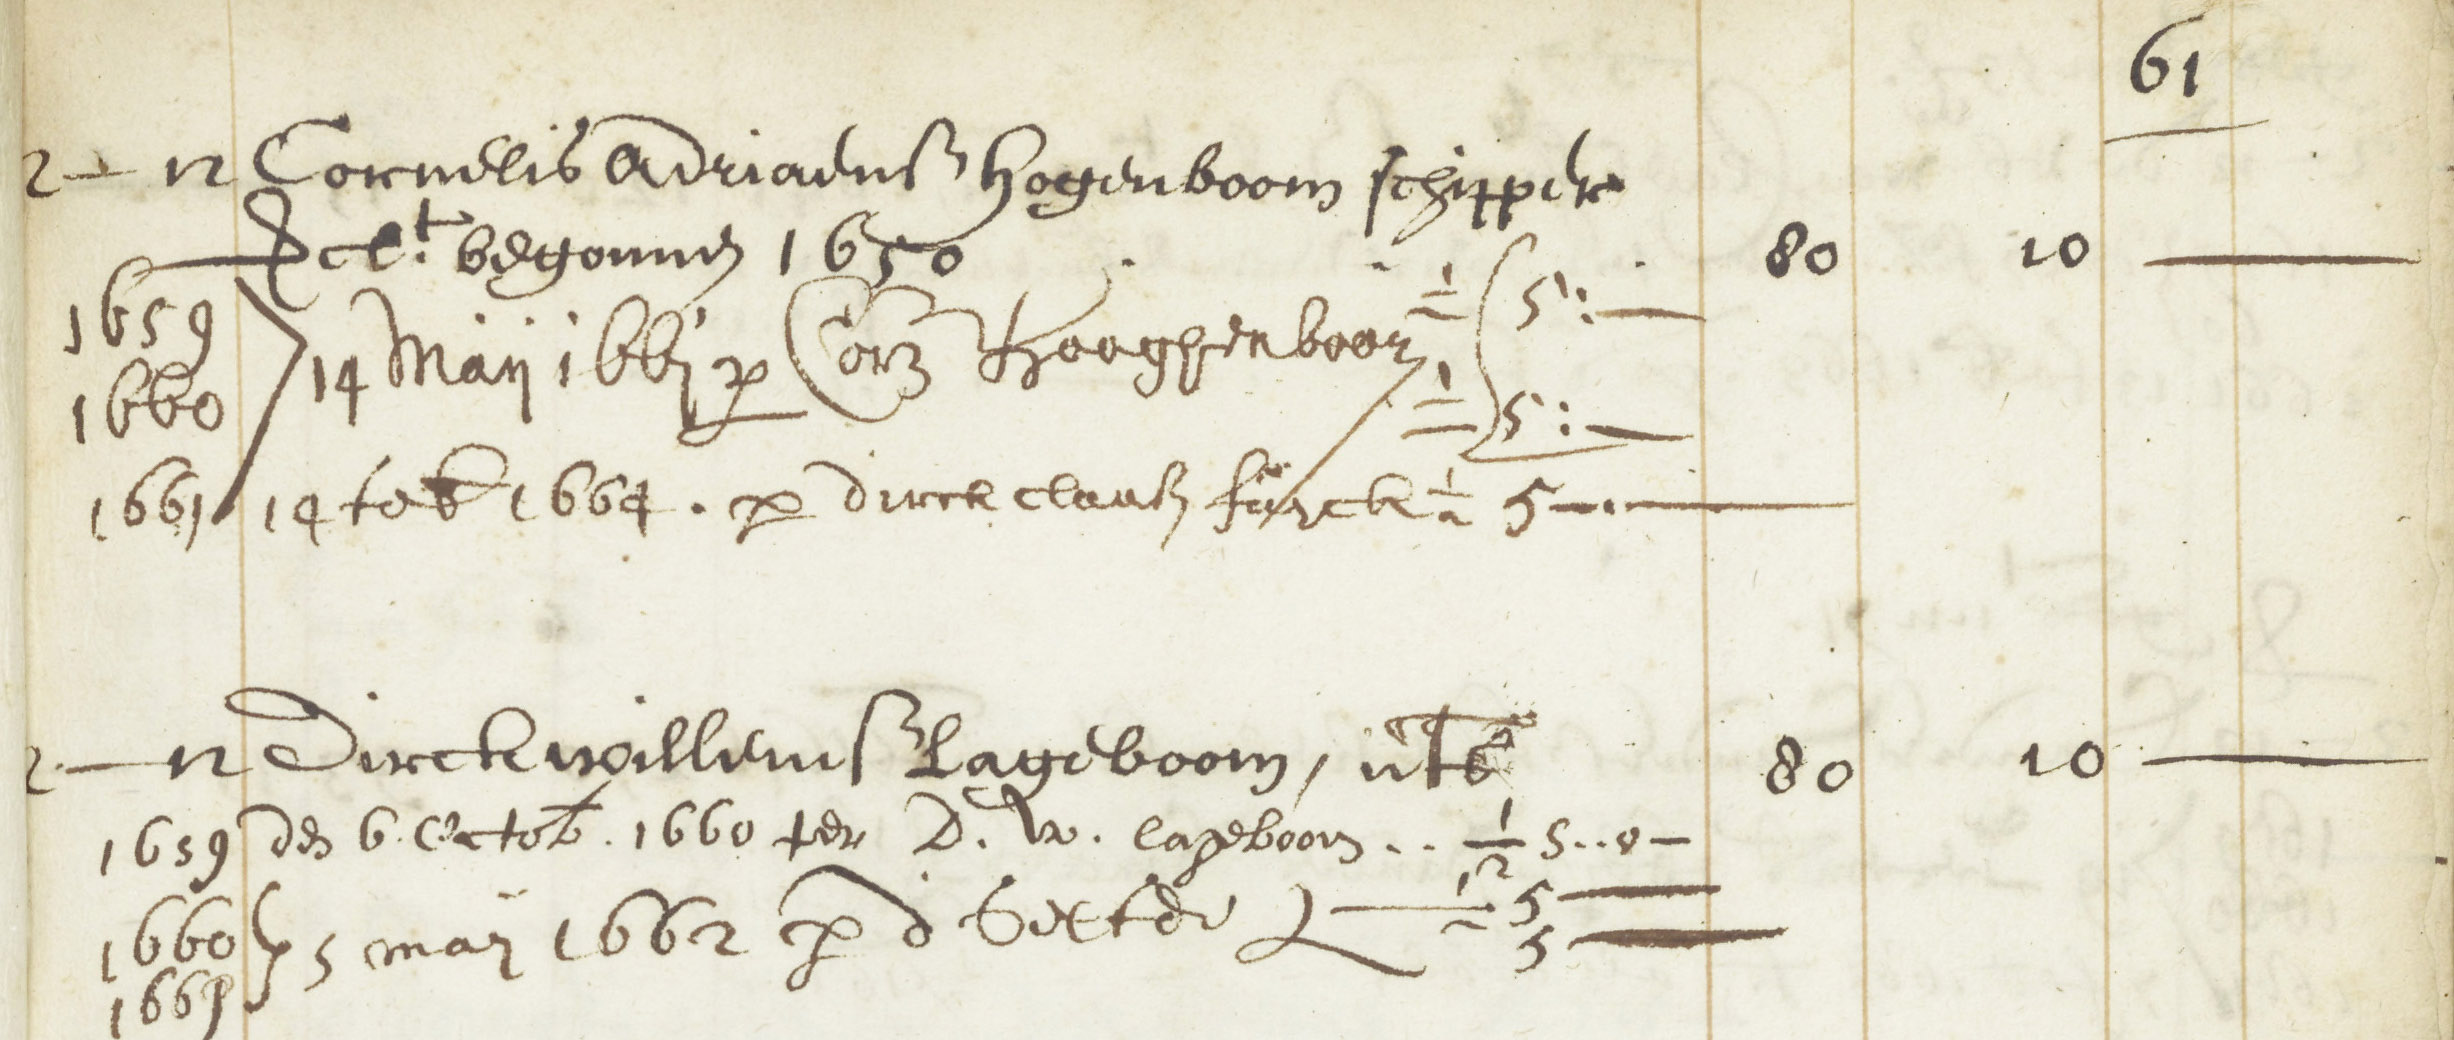 61
2 — 12 Cornelis Adriaensz Hogenboom schipper
begonnen 1650 80 10 —
1659 ½ 5:—
14 Maij 1661 p Corn Hooghenboom
1660 ½ 5:—
1661 14 feb 1664 . p dirck claasz ½ 5 —
2 — 12 Dirck willemsz Lageboom, 80 10 —
1659 den 6 Octob. 1660 per D. W. lageboom .. ½ 5..0—
1660 5 maij 1662 p d ½ 5 —
1661 5 —